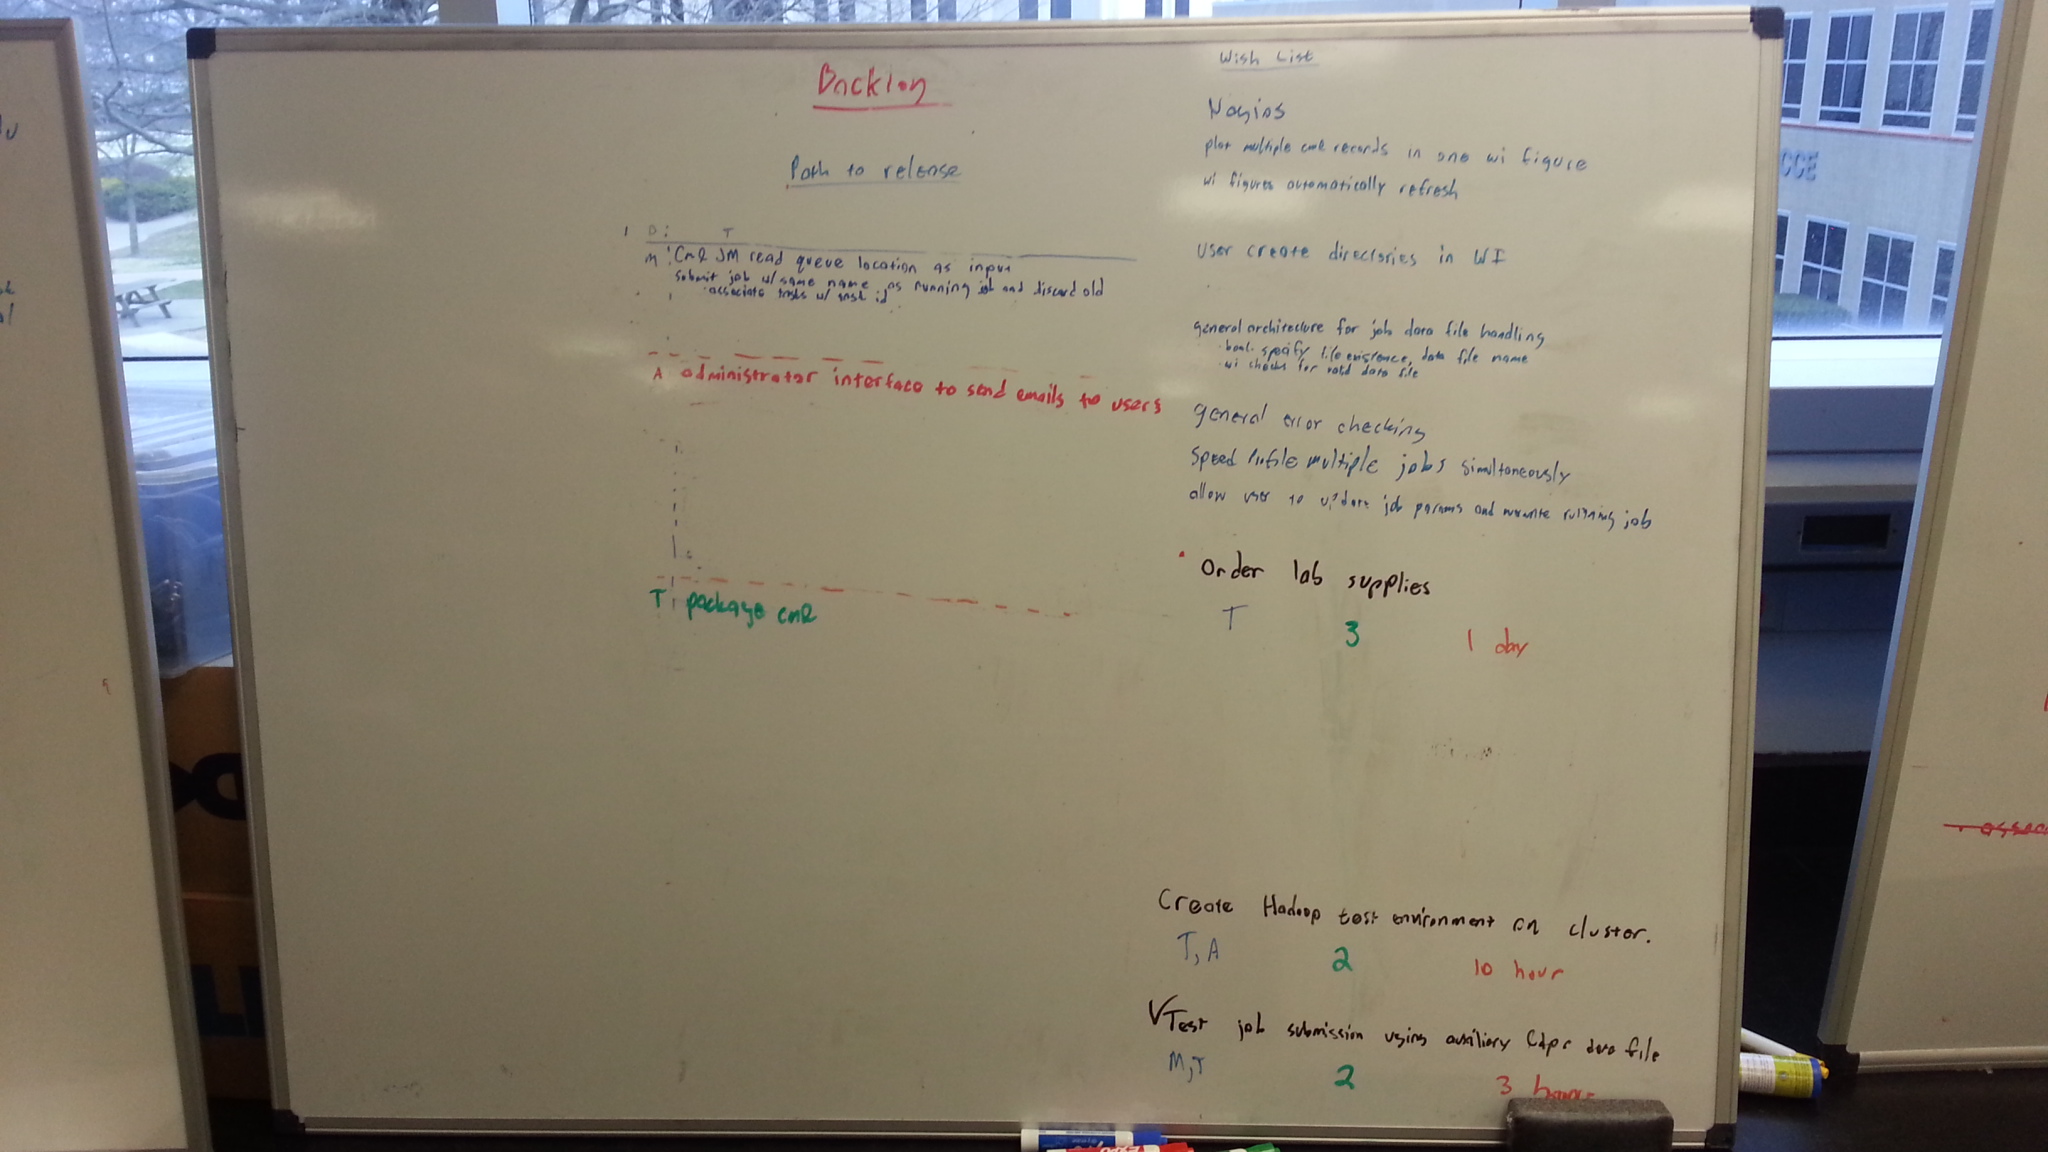 Backlog
Path to release
1 D: T
M CmR JM read queue location as input
submit job w/ same name as running job and discard old
associate tasks w/ task id
A administrator interface to send emails to users
T package cmR
Wish List
Nagios
plot multiple cmR records in one wi figure
wi figures automatically refresh
User create directories in WI
general architecture for job data file handling
bool. specify file existence, data file name
wi checks for valid data file
general error checking
Speed Profile multiple jobs simultaneously
allow user to update job params and running job
Order lab supplies
T 3 1 day
Create Hadoop test environment on cluster.
T, A 2 10 hour
√ Test job submission using auxiliary data file
M,T 2 3
CCE